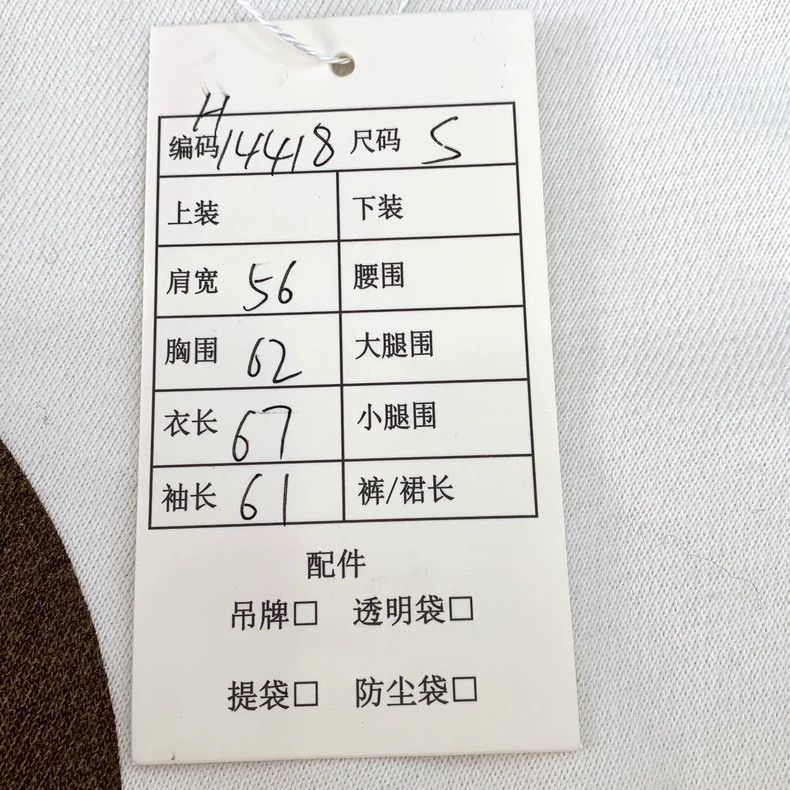 编码 H14418 尺码 S
上装 下装
肩宽 56 腰围
胸围 62 大腿围
衣长 67 小腿围
袖长 61 裤/裙长
配件
吊牌□ 透明袋□
提袋□ 防尘袋□